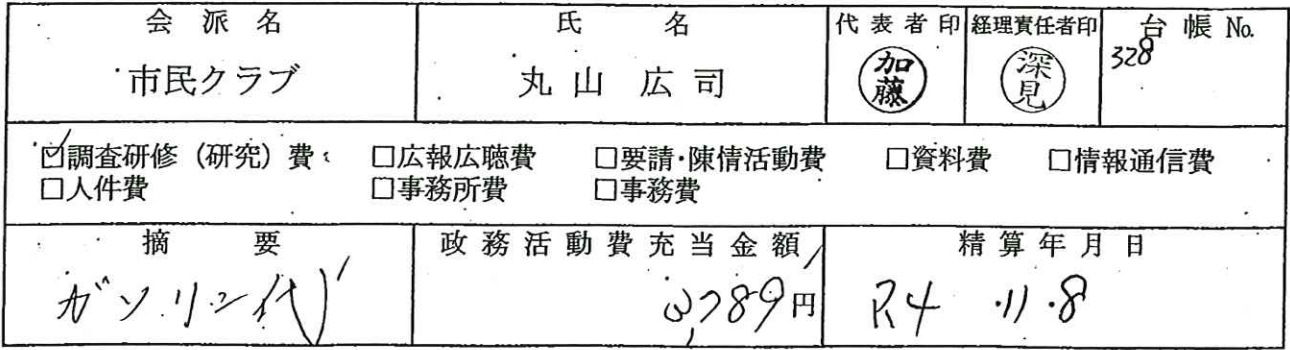 会派名 氏名 代表者印 経理責任者印 台帳No.
市民クラブ 丸山広司 加藤 深見 328
☑調査研修（研究）費 □広報広聴費 □要請・陳情活動費 □資料費 □情報通信費
□人件費 □事務所費 □事務費
摘要 政務活動費充当金額 精算年月日
ガソリン代 3,789円 R4.11.8